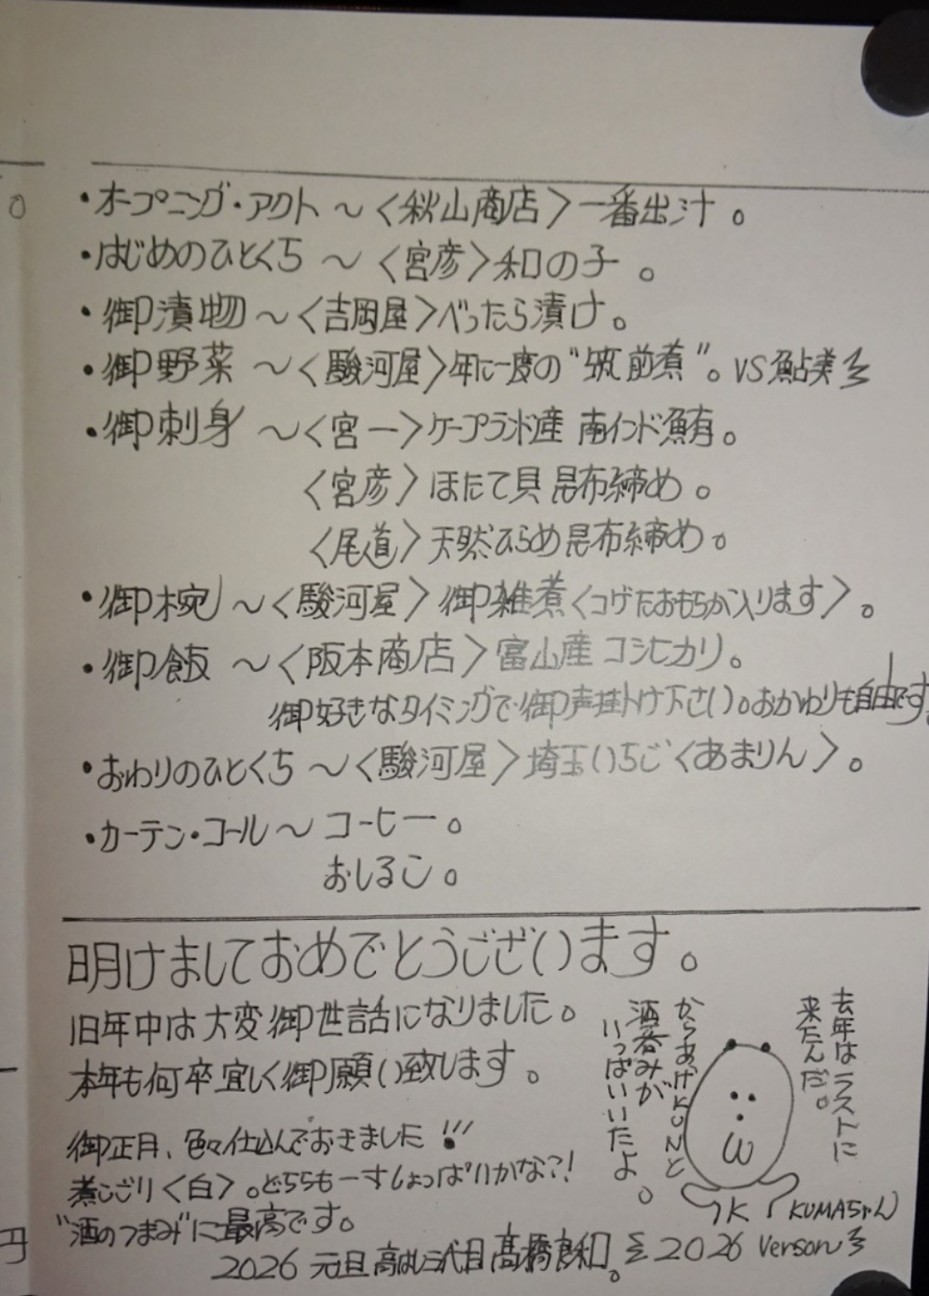 ・オープニング・アクト～〈秋山商店〉一番出汁。
・はじめのひとくち～〈宮彦〉和の子。
・御漬物～〈吉岡屋〉べったら漬け。
・御野菜～〈駿河屋〉年に一度の“筑前煮”。VS鮎美
・御刺身～〈宮一〉ケープランド産 南インド鮪。
〈宮彦〉ほたて貝昆布締め。
〈尾道〉天然ひらめ昆布締め。
・御椀～〈駿河屋〉御雑煮〈コゲたおもちが入ります〉。
・御飯～〈阪本商店〉富山産コシヒカリ。
御好きなタイミングで御声掛け下さい。おかわりも自由です。
・おわりのひとくち～〈駿河屋〉埼玉いちご〈あまりん〉。
・カーテン・コール～コーヒー。
おしるこ。
明けましておめでとうございます。
旧年中は大変御世話になりました。
本年も何卒宜しく御願い致します。
御正月、色々仕込んでおきました!!!
煮こごり〈白〉。どちらも一すしょっぱいかな?!
“酒のつまみ”に最高です。
2026 元旦 高はし三代目 髙橋良和。
2026 Verson
去年はラストに
来たんだ。
からあげKUNと
酒呑みが
いっぱいいたよ。
K
KUMAちゃん
円